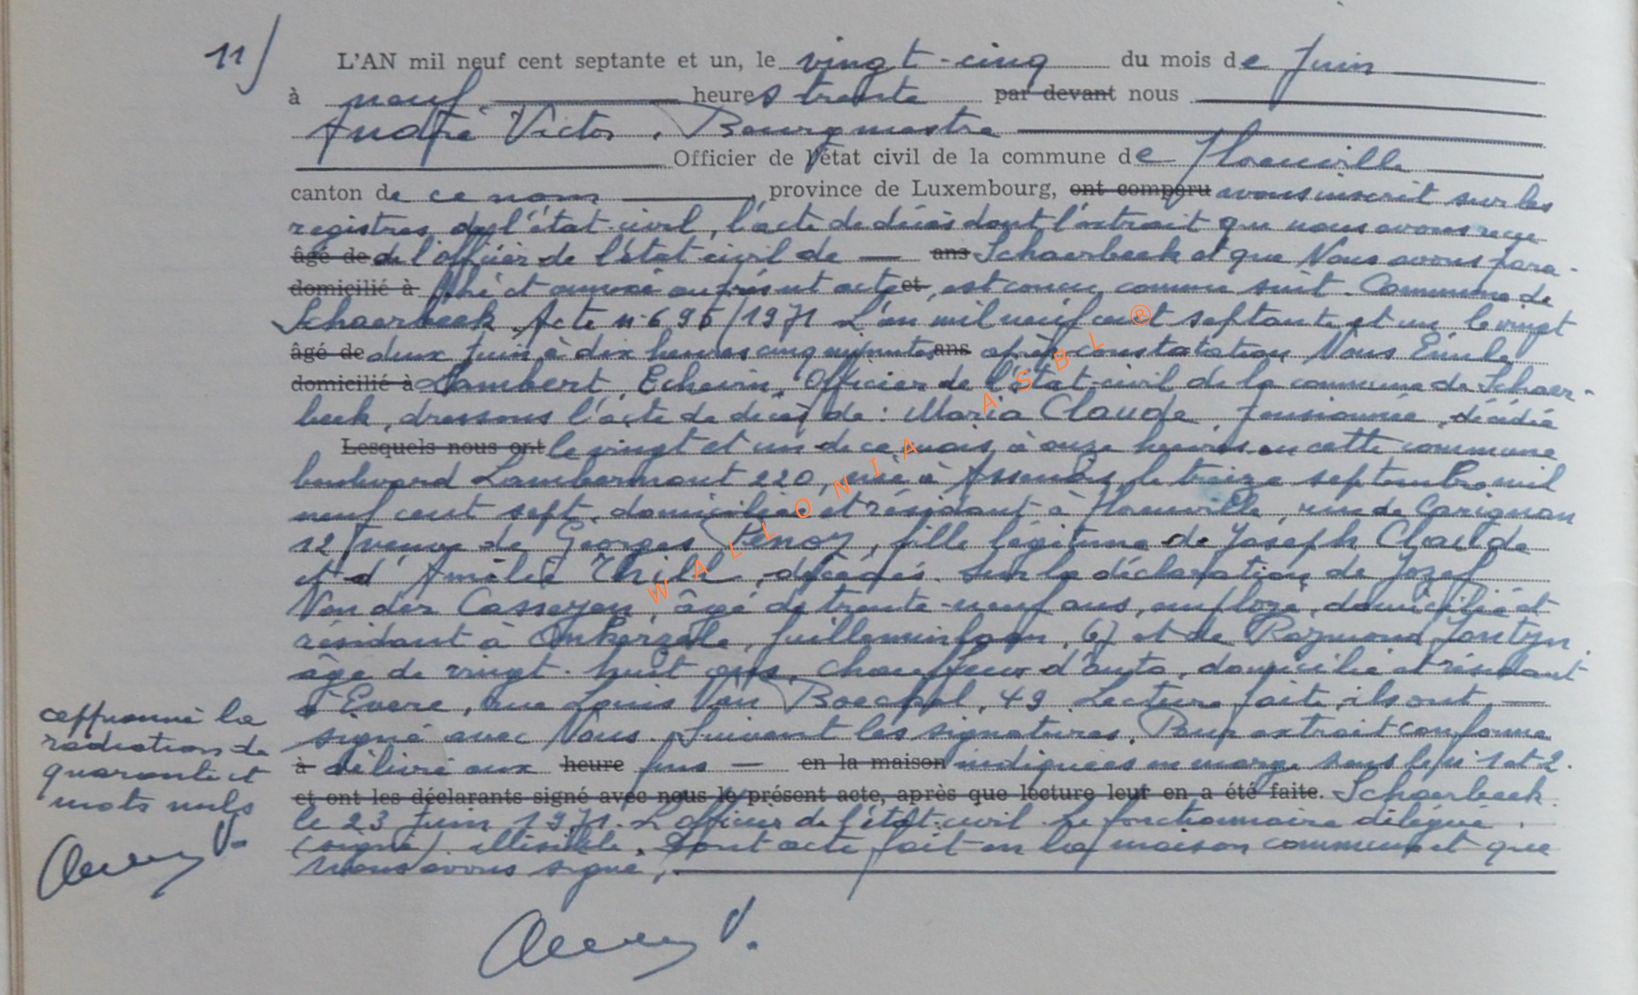 11/ L'AN mil neuf cent septante et un, le vingt-cinq du mois de Juin
à neuf heures trente par devant nous
André Victor, Bourgmestre
Officier de l'état civil de la commune de
canton de ce nom, province de Luxembourg, ont comparu avons inscrit sur les
registres de l'état-civil, l'acte de décès dont l'extrait que nous avons reçu
âgé de de l'officier de l'état-civil de — ans Schaerbeek et que Nous avons para-
domicilié à phé et annexé au présent acte et, est conçu comme suit. Commune de
Schaerbeek Acte n° 695/1971 L'an mil neuf cent septante et un, le vingt
âgé de deux juin à dix heures cinq minutes ans après constatation Nous Emile
domicilié à Lambert, Echevin, Officier de l'état-civil de la commune de Schaer-
beek, dressons l'acte de décès de : Maria Claude pensionnée, décédée
Lesquels nous ont le vingt et un de ce mois à onze heures en cette commune
boulevard Lambermont 220, née à le treize septembre mil
neuf cent sept, domiciliée et résidant à rue de Carignan
12, veuve de Georges fille légitime de Joseph Claude
et d'Amélie décédés. Sur la déclaration de Jozef
Van der Casseyen âgé de trente-neuf ans, employé, domicilié et
résidant à 67 et de Raymond
âgé de vingt-huit ans, chauffeur d'auto, domicilié et résidant
à Evere, rue Louis Van Boeckel, 49. Lecture faite, ils ont —
signé avec Nous. Suivent les signatures. Pour extrait conforme
à délivré aux heure fins — en la maison indiquées en marge sous le n° 1 et 2.
et ont les déclarants signé avec nous le présent acte, après que lecture leur en a été faite. Schaerbeek
le 23 Juin 1971. L'officier de l'état-civil. Le fonctionnaire délégué.
(signé) illisible. Dont acte fait en la maison communale et que
Nous avons signé,
approuvé la
radiation de
quarante et
mots nuls
WALLONIA ASBL ®